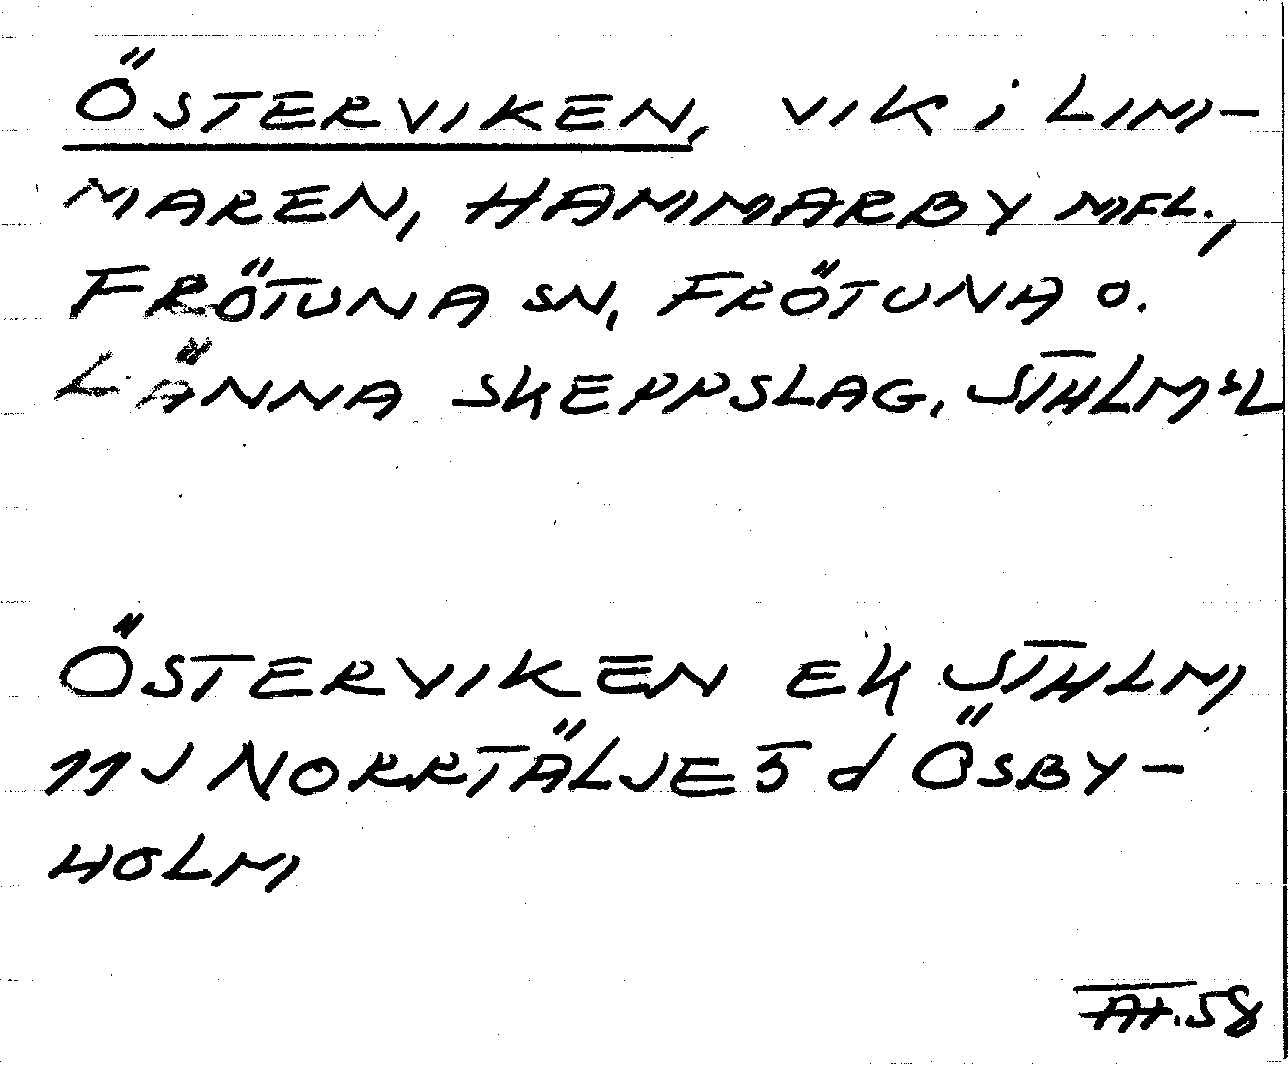 ÖSTERVIKEN, VIK i LIM-
MAREN, HAMMARBY MFL.,
FRÖTUNA SN, FRÖTUNA O.
LÄNNA SKEPPSLAG, STHLMSL
ÖSTERVIKEN EK STHLM
11J NORRTÄLJE 5 d ÖSBY-
HOLM
58